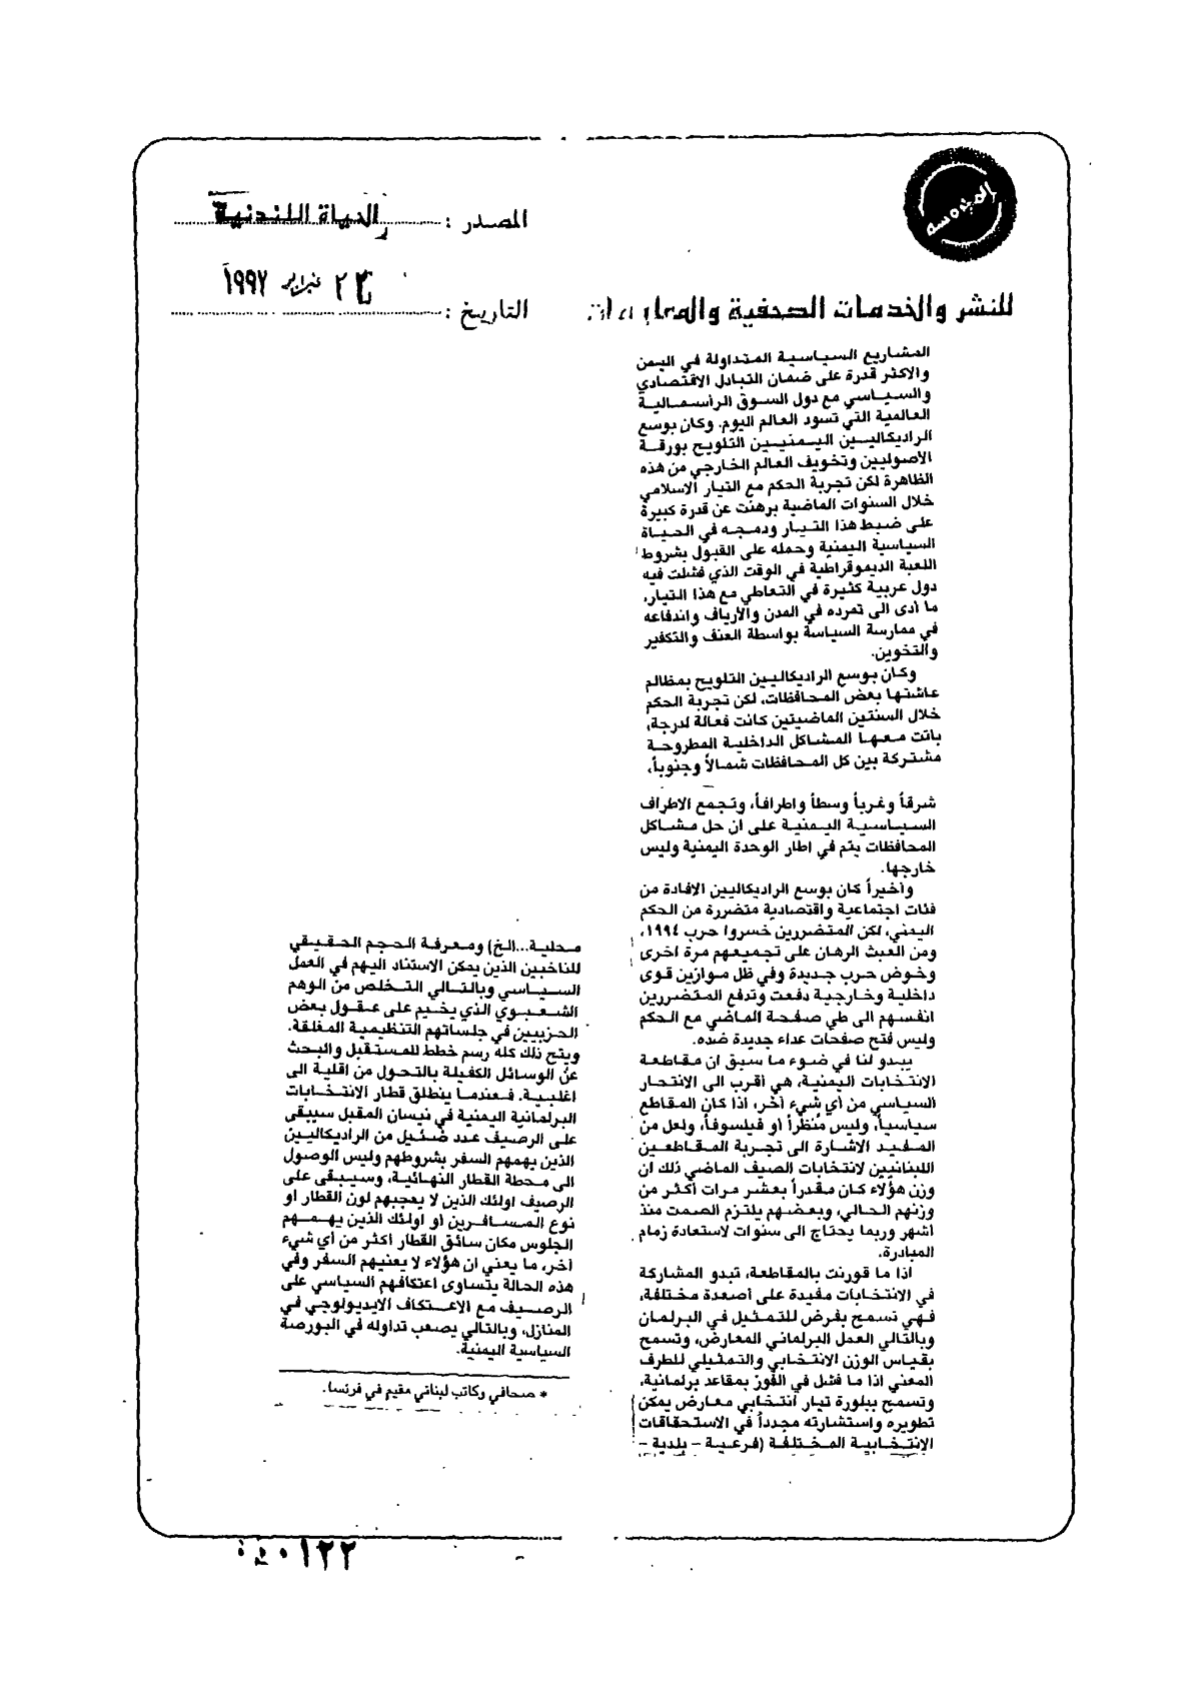 المحروسة
للنشر والخدمات الصحفية والمعلومات
المصدر : الحياة اللندنية
التاريخ : ٢٣ فبراير ١٩٩٧
المشاريع السياسية المتداولة في اليمن
والاكثر قدرة على ضمان التبادل الاقتصادي
والسياسي مع دول السوق الرأسمالية
العالمية التي تسود العالم اليوم. وكان بوسع
الراديكاليين اليمنيين التلويح بورقة
الاصوليين وتخويف العالم الخارجي من هذه
الظاهرة لكن تجربة الحكم مع التيار الاسلامي
خلال السنوات الماضية برهنت عن قدرة كبيرة
على ضبط هذا التيار ودمجه في الحياة
السياسية اليمنية وحمله على القبول بشروط
اللعبة الديموقراطية في الوقت الذي فشلت فيه
دول عربية كثيرة في التعاطي مع هذا التيار،
ما أدى الى تمرده في المدن والارياف واندفاعه
في ممارسة السياسة بواسطة العنف والتكفير
والتخوين.
وكان بوسع الراديكاليين التلويح بمظالم
عاشتها بعض المحافظات، لكن تجربة الحكم
خلال السنتين الماضيتين كانت فعالة لدرجة،
باتت معها المشاكل الداخلية المطروحة
مشتركة بين كل المحافظات شمالاً وجنوباً،
شرقاً وغرباً وسطاً واطرافاً، وتجمع الاطراف
السياسية اليمنية على ان حل مشاكل
المحافظات يتم في اطار الوحدة اليمنية وليس
خارجها.
وأخيراً كان بوسع الراديكاليين الافادة من
فئات اجتماعية واقتصادية متضررة من الحكم
اليمني، لكن المتضررين خسروا حرب ١٩٩٤،
ومن العبث الرهان على تجميعهم مرة اخرى
وخوض حرب جديدة وفي ظل موازين قوى
داخلية وخارجية دفعت وتدفع المتضررين
انفسهم الى طي صفحة الماضي مع الحكم
وليس فتح صفحات عداء جديدة ضده.
يبدو لنا في ضوء ما سبق ان مقاطعة
الانتخابات اليمنية، هي أقرب الى الانتحار
السياسي من أي شيء آخر، اذا كان المقاطع
سياسياً، وليس مُنظّراً أو فيلسوفاً، ولعل من
المفيد الاشارة الى تجربة المقاطعين
اللبنانيين لانتخابات الصيف الماضي ذلك ان
وزن هؤلاء كان مقدراً بعشر مرات أكثر من
وزنهم الحالي، وبعضهم يلتزم الصمت منذ
أشهر وربما يحتاج الى سنوات لاستعادة زمام
المبادرة.
اذا ما قورنت بالمقاطعة، تبدو المشاركة
في الانتخابات مفيدة على أصعدة مختلفة،
فهي تسمح بفرض للتمثيل في البرلمان
وبالتالي العمل البرلماني المعارض، وتسمح
بقياس الوزن الانتخابي والتمثيلي للطرف
المعني اذا ما فشل في الفوز بمقاعد برلمانية،
وتسمح ببلورة تيار انتخابي معارض يمكن
تطويره واستشارته مجدداً في الاستحقاقات
الانتخابية المختلفة (فرعية – بلدية –
محلية...الخ) ومعرفة الحجم الحقيقي
للناخبين الذين يمكن الاستناد اليهم في العمل
السياسي وبالتالي التخلص من الوهم
الشعبوي الذي يخيم على عقول بعض
الحزبيين في جلساتهم التنظيمية المغلقة.
ويتح ذلك كله رسم خطط للمستقبل والبحث
عن الوسائل الكفيلة بالتحول من اقلية الى
اغلبية. فعندما ينطلق قطار الانتخابات
البرلمانية اليمنية في نيسان المقبل سيبقى
على الرصيف عدد ضئيل من الراديكاليين
الذين يهمهم السفر بشروطهم وليس الوصول
الى محطة القطار النهائية، وسيبقى على
الرصيف اولئك الذين لا يعجبهم لون القطار او
نوع المسافرين أو اولئك الذين يهمهم
الجلوس مكان سائق القطار اكثر من أي شيء
آخر، ما يعني ان هؤلاء لا يعنيهم السفر وفي
هذه الحالة يتساوى اعتكافهم السياسي على
الرصيف مع الاعتكاف الايديولوجي في
المنازل، وبالتالي يصعب تداوله في البورصة
السياسية اليمنية.
* صحافي وكاتب لبناني مقيم في فرنسا.